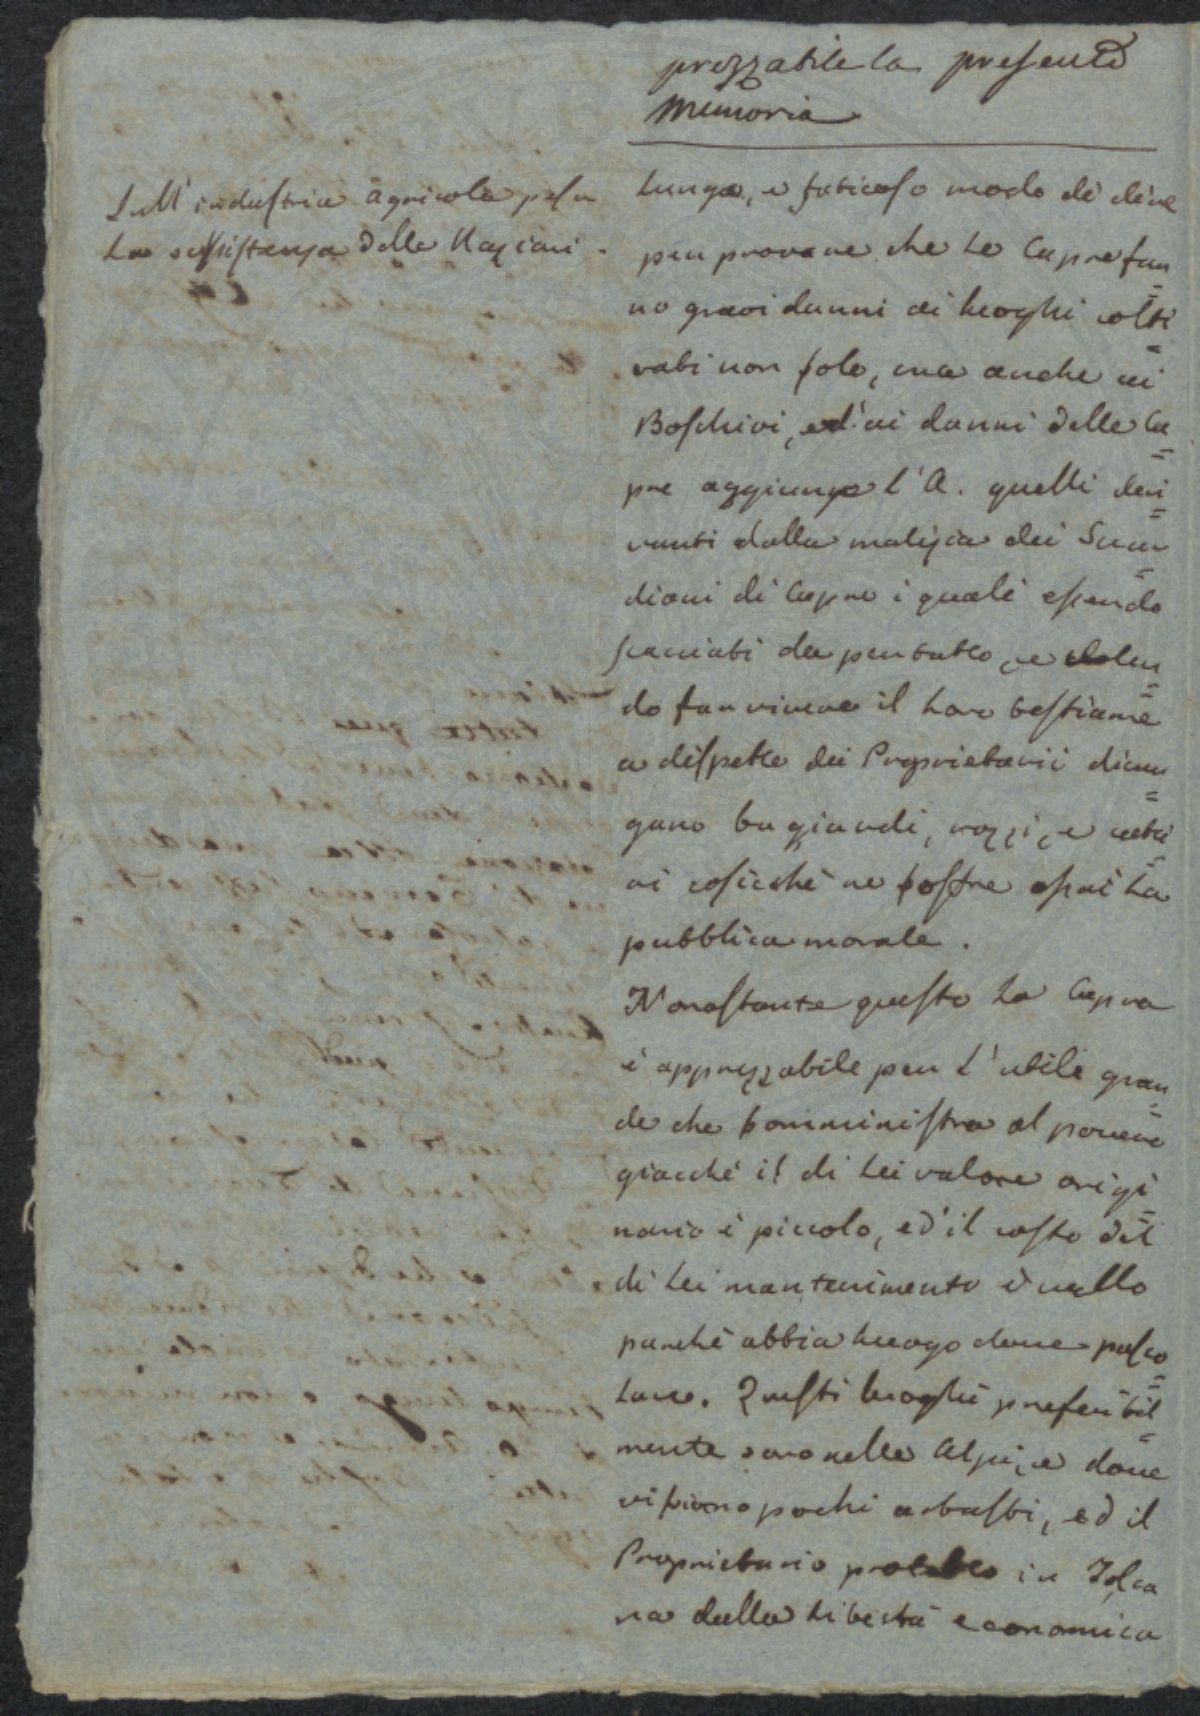 prezzabile la presente
Memoria
Sull'industria Agricola posa
La sussistenza delle Nazioni.
Lungo, e faticoso modo di dire
per provare che Le Capre fan=
no gravi danni ai luoghi colti=
vati non solo, ma anche ai
Boschivi, ed'ai danni delle Ca=
pre aggiunge L'A. quelli deri=
vanti dalla malizia dei Guar=
diani di Capre i quali essendo
scacciati da per tutto, e volen=
do far vivere il Loro bestiame
a dispetto dei Proprietarii diven=
gono bugiardi, rozzi, e catti=
vi cosicchè ne soffre assai La
pubblica morale.
Nonostante questo La Capra
è apprezzabile per L'utile gran=
de che somministra al povero
giacchè il di Lei valore origi=
nario è piccolo, ed'il costo del
di Lei mantenimento è nullo
purchè abbia Luogo dove pasco=
Lare. Questi Luoghi preferibil=
mente sono nelle Alpi, e dove
vi siano pochi arbusti, ed il
Proprietario protetto in Tosca
na dalla Libertà economica